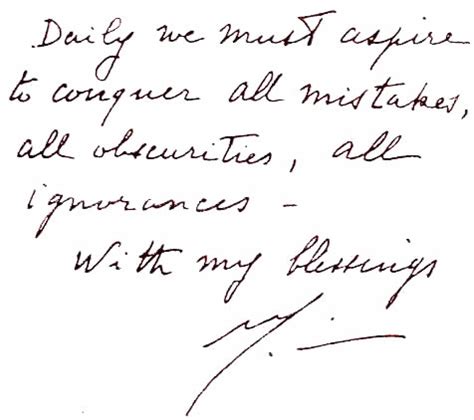 Daily we must aspire
to conquer all mistakes,
all obscurities, all
ignorances –
With my blessings